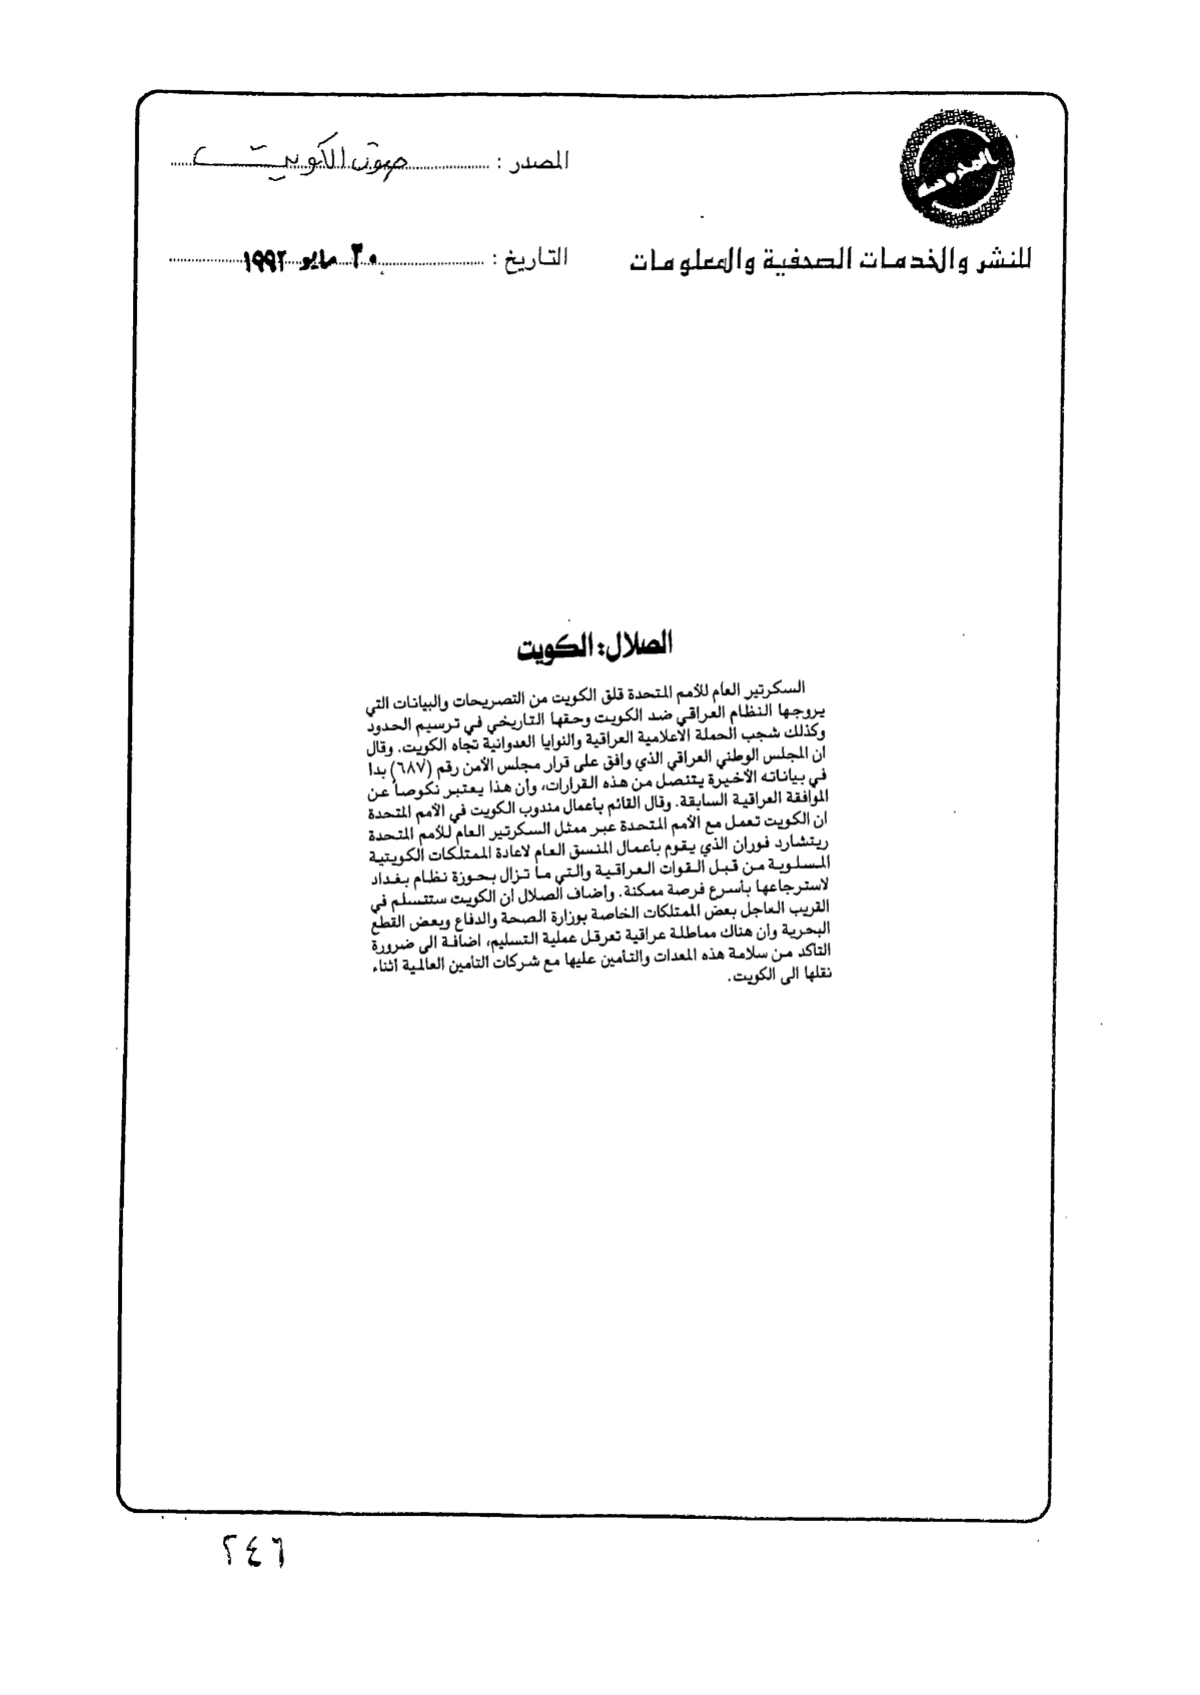 المصدر : صوت الكويت
للنشر والخدمات الصحفية والمعلومات
التاريخ : ٣٠ مايو ١٩٩٢
الصلال: الكويت
السكرتير العام للأمم المتحدة قلق الكويت من التصريحات والبيانات التي
يروجها النظام العراقي ضد الكويت وحقها التاريخي في ترسيم الحدود
وكذلك شجب الحملة الأعلامية العراقية والنوايا العدوانية تجاه الكويت. وقال
ان المجلس الوطني العراقي الذي وافق على قرار مجلس الأمن رقم (٦٨٧) بدا
في بياناته الأخيرة يتنصل من هذه القرارات، وأن هذا يعتبر نكوصاً عن
الموافقة العراقية السابقة. وقال القائم بأعمال مندوب الكويت في الأمم المتحدة
ان الكويت تعمل مع الأمم المتحدة عبر ممثل السكرتير العام للأمم المتحدة
ريتشارد فوران الذي يقوم بأعمال المنسق العام لاعادة الممتلكات الكويتية
المسلوبة من قبل القوات العراقية والتي ما تزال بحوزة نظام بغداد
لاسترجاعها بأسرع فرصة ممكنة. وأضاف الصلال ان الكويت ستتسلم في
القريب العاجل بعض الممتلكات الخاصة بوزارة الصحة والدفاع وبعض القطع
البحرية وان هناك مماطلة عراقية تعرقل عملية التسليم، اضافة الى ضرورة
التاكد من سلامة هذه المعدات والتأمين عليها مع شركات التامين العالمية أثناء
نقلها الى الكويت.
٢٤٦